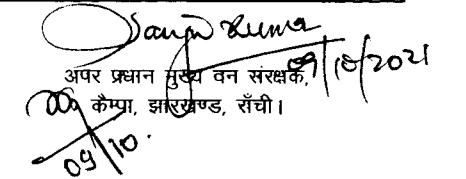 Sanjay Kumar
09/10/2021
अपर प्रधान मुख्य वन संरक्षक,
कैम्पा, झारखण्ड, राँची।
09/10.